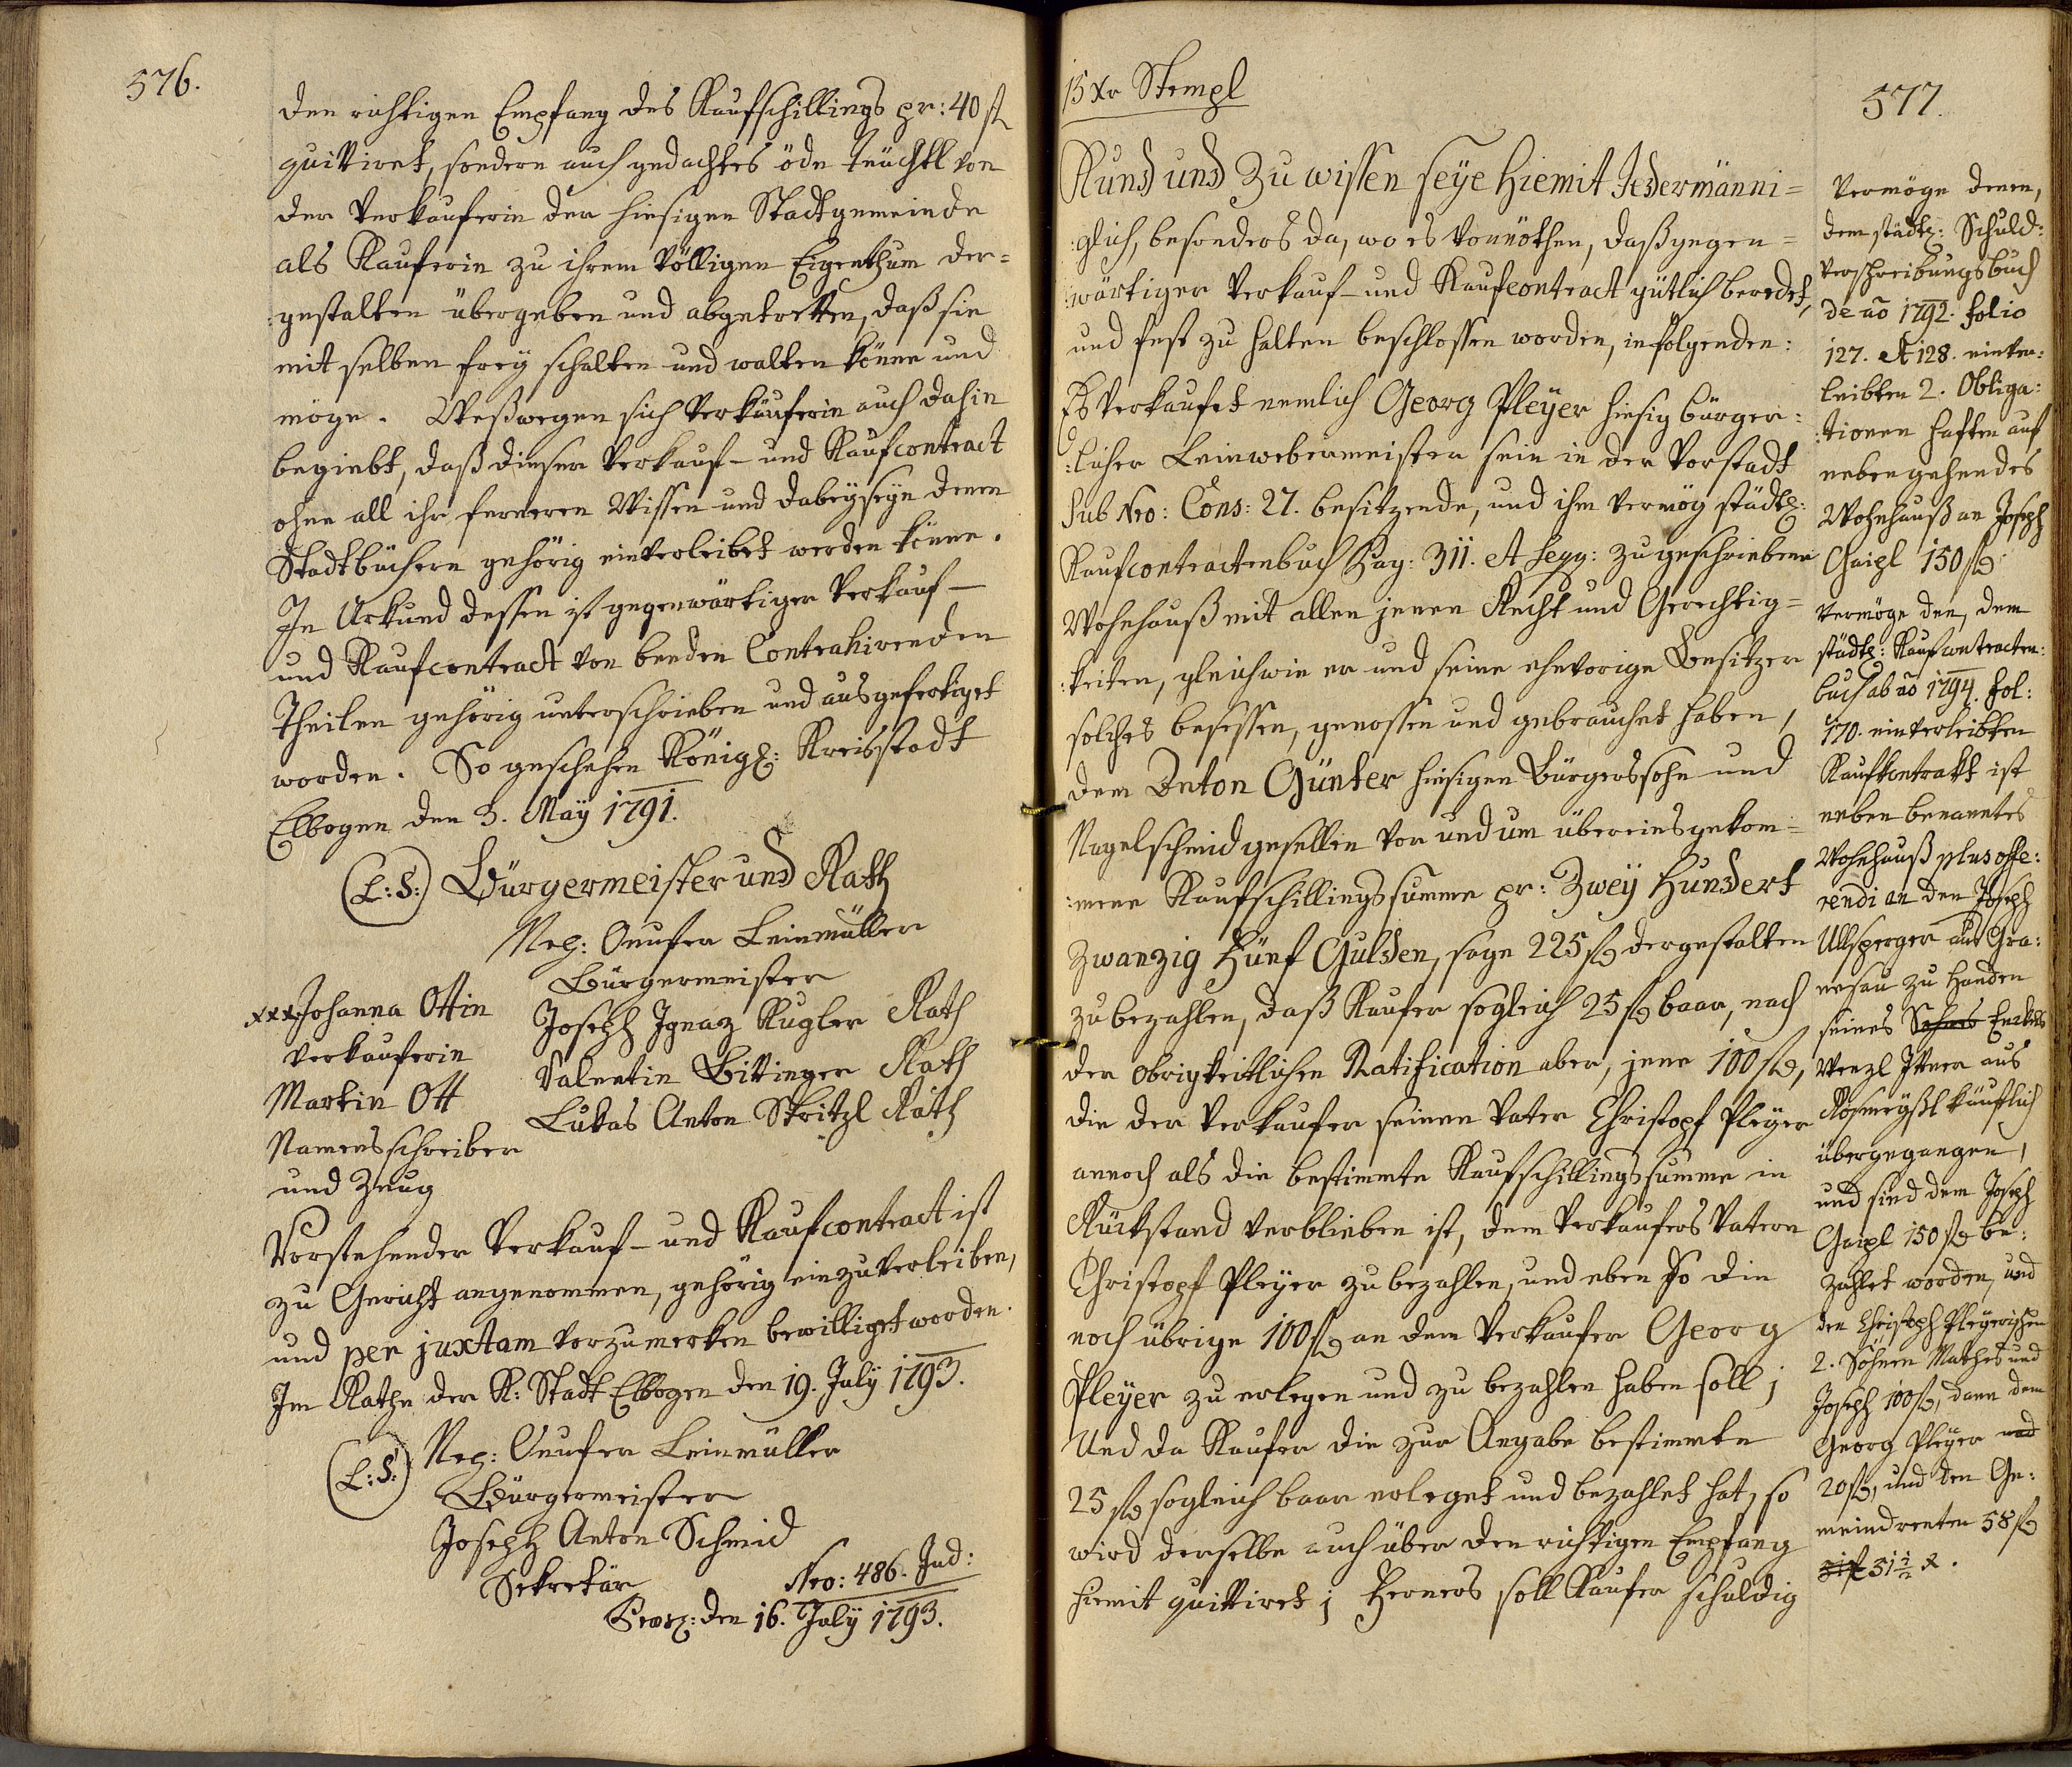 576.
den richtigen Empfang des Kaufschillings pr: 40 fl
quittiret, sondern auch gedachtes öde Teüchtl von
der Verkauferin der hiesigen Stadtgemeinde
als Kauferin zu ihrem völligen Eigenthum der=
:gestalten übergeben und abgetretten, daß sie
mit selben freÿ schalten und walten könne und
möge. Weßwegen sich Verkäuferin auch dahin
begiebt, daß dieser Verkauf- und Kaufcontract
ohne all ihr ferneren Wissen und Dabeÿseÿn denen
Stadtbüchern gehörig einverleibet werden könne.
In Urkund dessen ist gegenwärtiger Verkauf-
und Kaufcontract von beeden Contrahirenden
Theilen gehörig unterschrieben und ausgefertiget
worden. So geschehen Königl: Kreisstadt
Elbogen den 3. Maÿ 1791.
(L:S:) Bürgermeister und Rath
Onufer Leinmüller
Bürgermeister
xxx Johanna Ottin
Verkauferin
Martin Ott
Namensschreiber
und Zeug
Joseph Ignaz Kugler Rath
Valentin Bittinger Rath
Lukas Anton Stritzl Rath
Vorstehender Verkauf- und Kaufcontract ist
zu Gericht angenommen, gehörig einzuverleiben,
und per juxtam vorzumerken bewilliget worden.
Im Rathe der K: Stadt Elbogen den 19. July 1793.
(L:S:) Onufer Leinmüller
Bürgermeister
Joseph Anton Schmid
Sekretär
Nro: 486. Jud:
den 16. July 1793.
15 Xr Stempl
577.
Kund und Zu wissen seÿe hiemit Jedermänni=
:glich, besonders da, wo es vonnöthen, daß gegen=
:wärtiger Verkauf- und Kaufcontract gütlich beredet,
und fest zu halten beschlossen worden, in folgenden:
Es verkaufet nemlich Georg Pleÿer hiesig bürger:
:licher Leinwebermeister sein in der Vorstadt
sub Nro: Cons: 27. besitzende, und ihm vermög städtl:
Kaufcontractenbuch Pag: 311. et seqq: zugeschriebene
Wohnhauß mit allen jenen Recht und Gerechtig=
:keiten, gleichwie er und seine ehevorige Besitzer
solches besessen, genossen und gebrauchet haben,
dem Anton Günter hiesigen Bürgerssohn und
Nagelschmid gesellen vor und um übereinsgekom=
:mene Kaufschillingssumme pr: Zweÿ Hundert
Zwanzig Fünf Gulden, sage 225 fl dergestalten
zu bezahlen, daß Kaufer sogleich 25 fl baar, nach
der obrigkeitlichen Ratification aber, jene 100 fl,
die der Verkaufer seinem Vater Christoph Pleÿer
annoch als die bestimmte Kaufschillingssumme in
Rückstand verblieben ist, dem Verkaufers Vatern
Christoph Pleÿer zu bezahlen, und eben so die
noch übrige 100 fl an dem Verkaufer Georg
Pleÿer zu erlegen und zu bezahlen haben soll;
Und da Kaufer die zur Angabe bestimmte
25 fl sogleich baar erleget und bezahlet hat, so
wird derselbe auch über den richtigen Empfang
hiemit quittiret; Ferners soll Kaufer schuldig
Vermöge denen,
dem städtl: Schuld:
verschreibungsbuch
de ao 1792. folio
127. et 128. einver:
leibten 2. Obliga:
:tionen haften auf
nebengehendes
Wohnhauß an Joseph
Gaipl 150 fl.
Vermöge den, dem
städtl: Kaufcontracten:
buch ab ao 1794. fol:
170. einverleibten
Kaufkontrakt ist
neben benanntes
Wohnhauß plus offe:
rendi an den Joseph
Ullsperger aus Gra:
nesau zu Handen
seines Sohns Enkels
Wenzl Ittner aus
käuflich
übergegangen,
und sind dem Joseph
Gaipl 150 fl be:
zahlet worden, und
den Christoph Pleÿerischen
2. Söhnen Mathes und
Joseph 100 fl, dann dem
Georg Pleÿer und
20 fl, und den Ge:
meindrenten 58 fl
31 1/2 X.